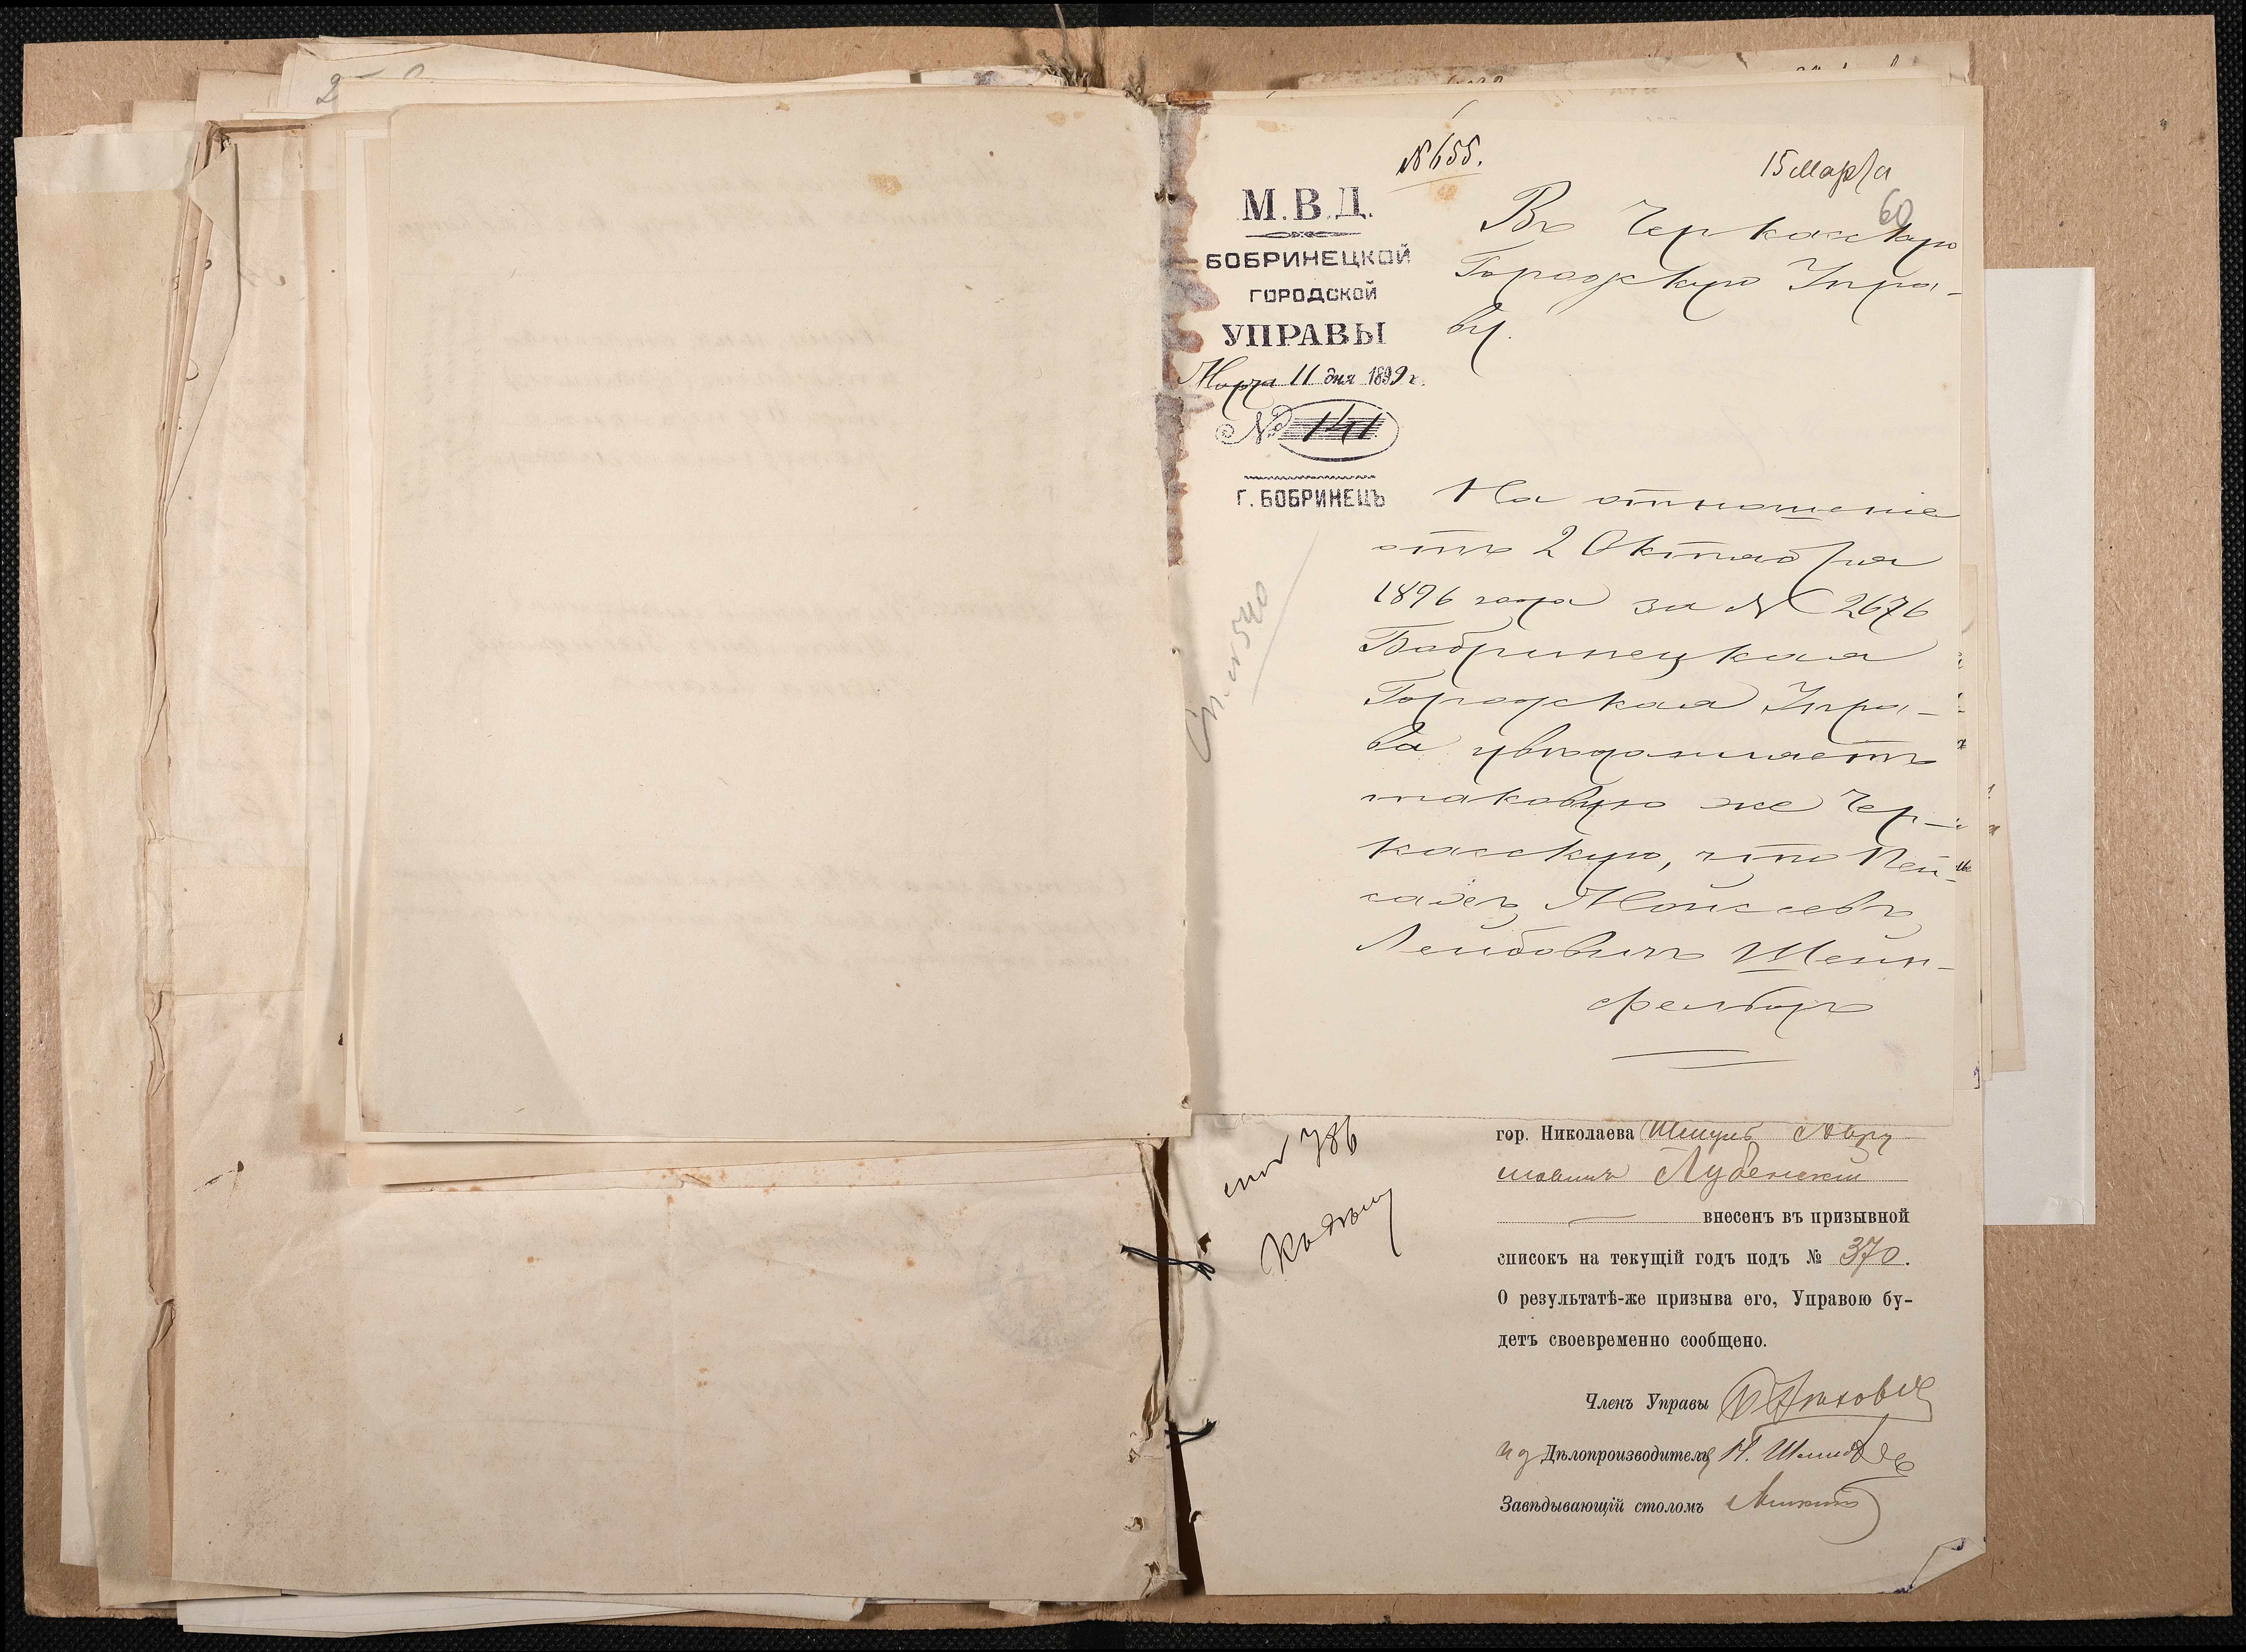 № 655.
15 Марта
60
М.В.Д.
БОБРИНЕЦКОЙ
ГОРОДСКОЙ
УПРАВЫ
Марта 11 дня 1899 г.
№ 141
Г. БОБРИНЕЦЪ
Въ Черкасскую
Городскую Упра-
ву.
На отношеніе
отъ 2 Октября
1896 года за № 2676
Бобринецкая
Городская Упра-
ва увѣдомляетъ
таковую же Чер-
касскую, что Пей-
сахъ Мойсеевъ
Лейбовичъ Шейн-
фельдъ
540
786
гор. Николаева Шмуль Авру
мовичъ Лубенскій
внесенъ въ призывной
списокъ на текущій годъ подъ № 370.
О результатѣ-же призыва его, Управою бу-
детъ своевременно сообщено.
Членъ Управы
И д Дѣлопроизводителя Н.
Завѣдывающій столомъ